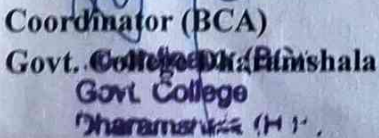 Coordinator (BCA)
Govt. College Dharamshala
Govt. College
Dharamshala (H.P.